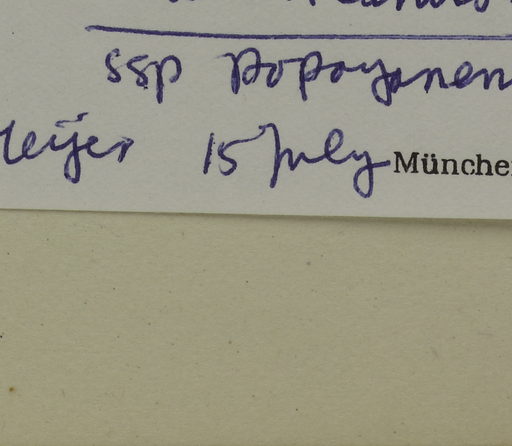 ssp popayanen
leijer 15 July Münche